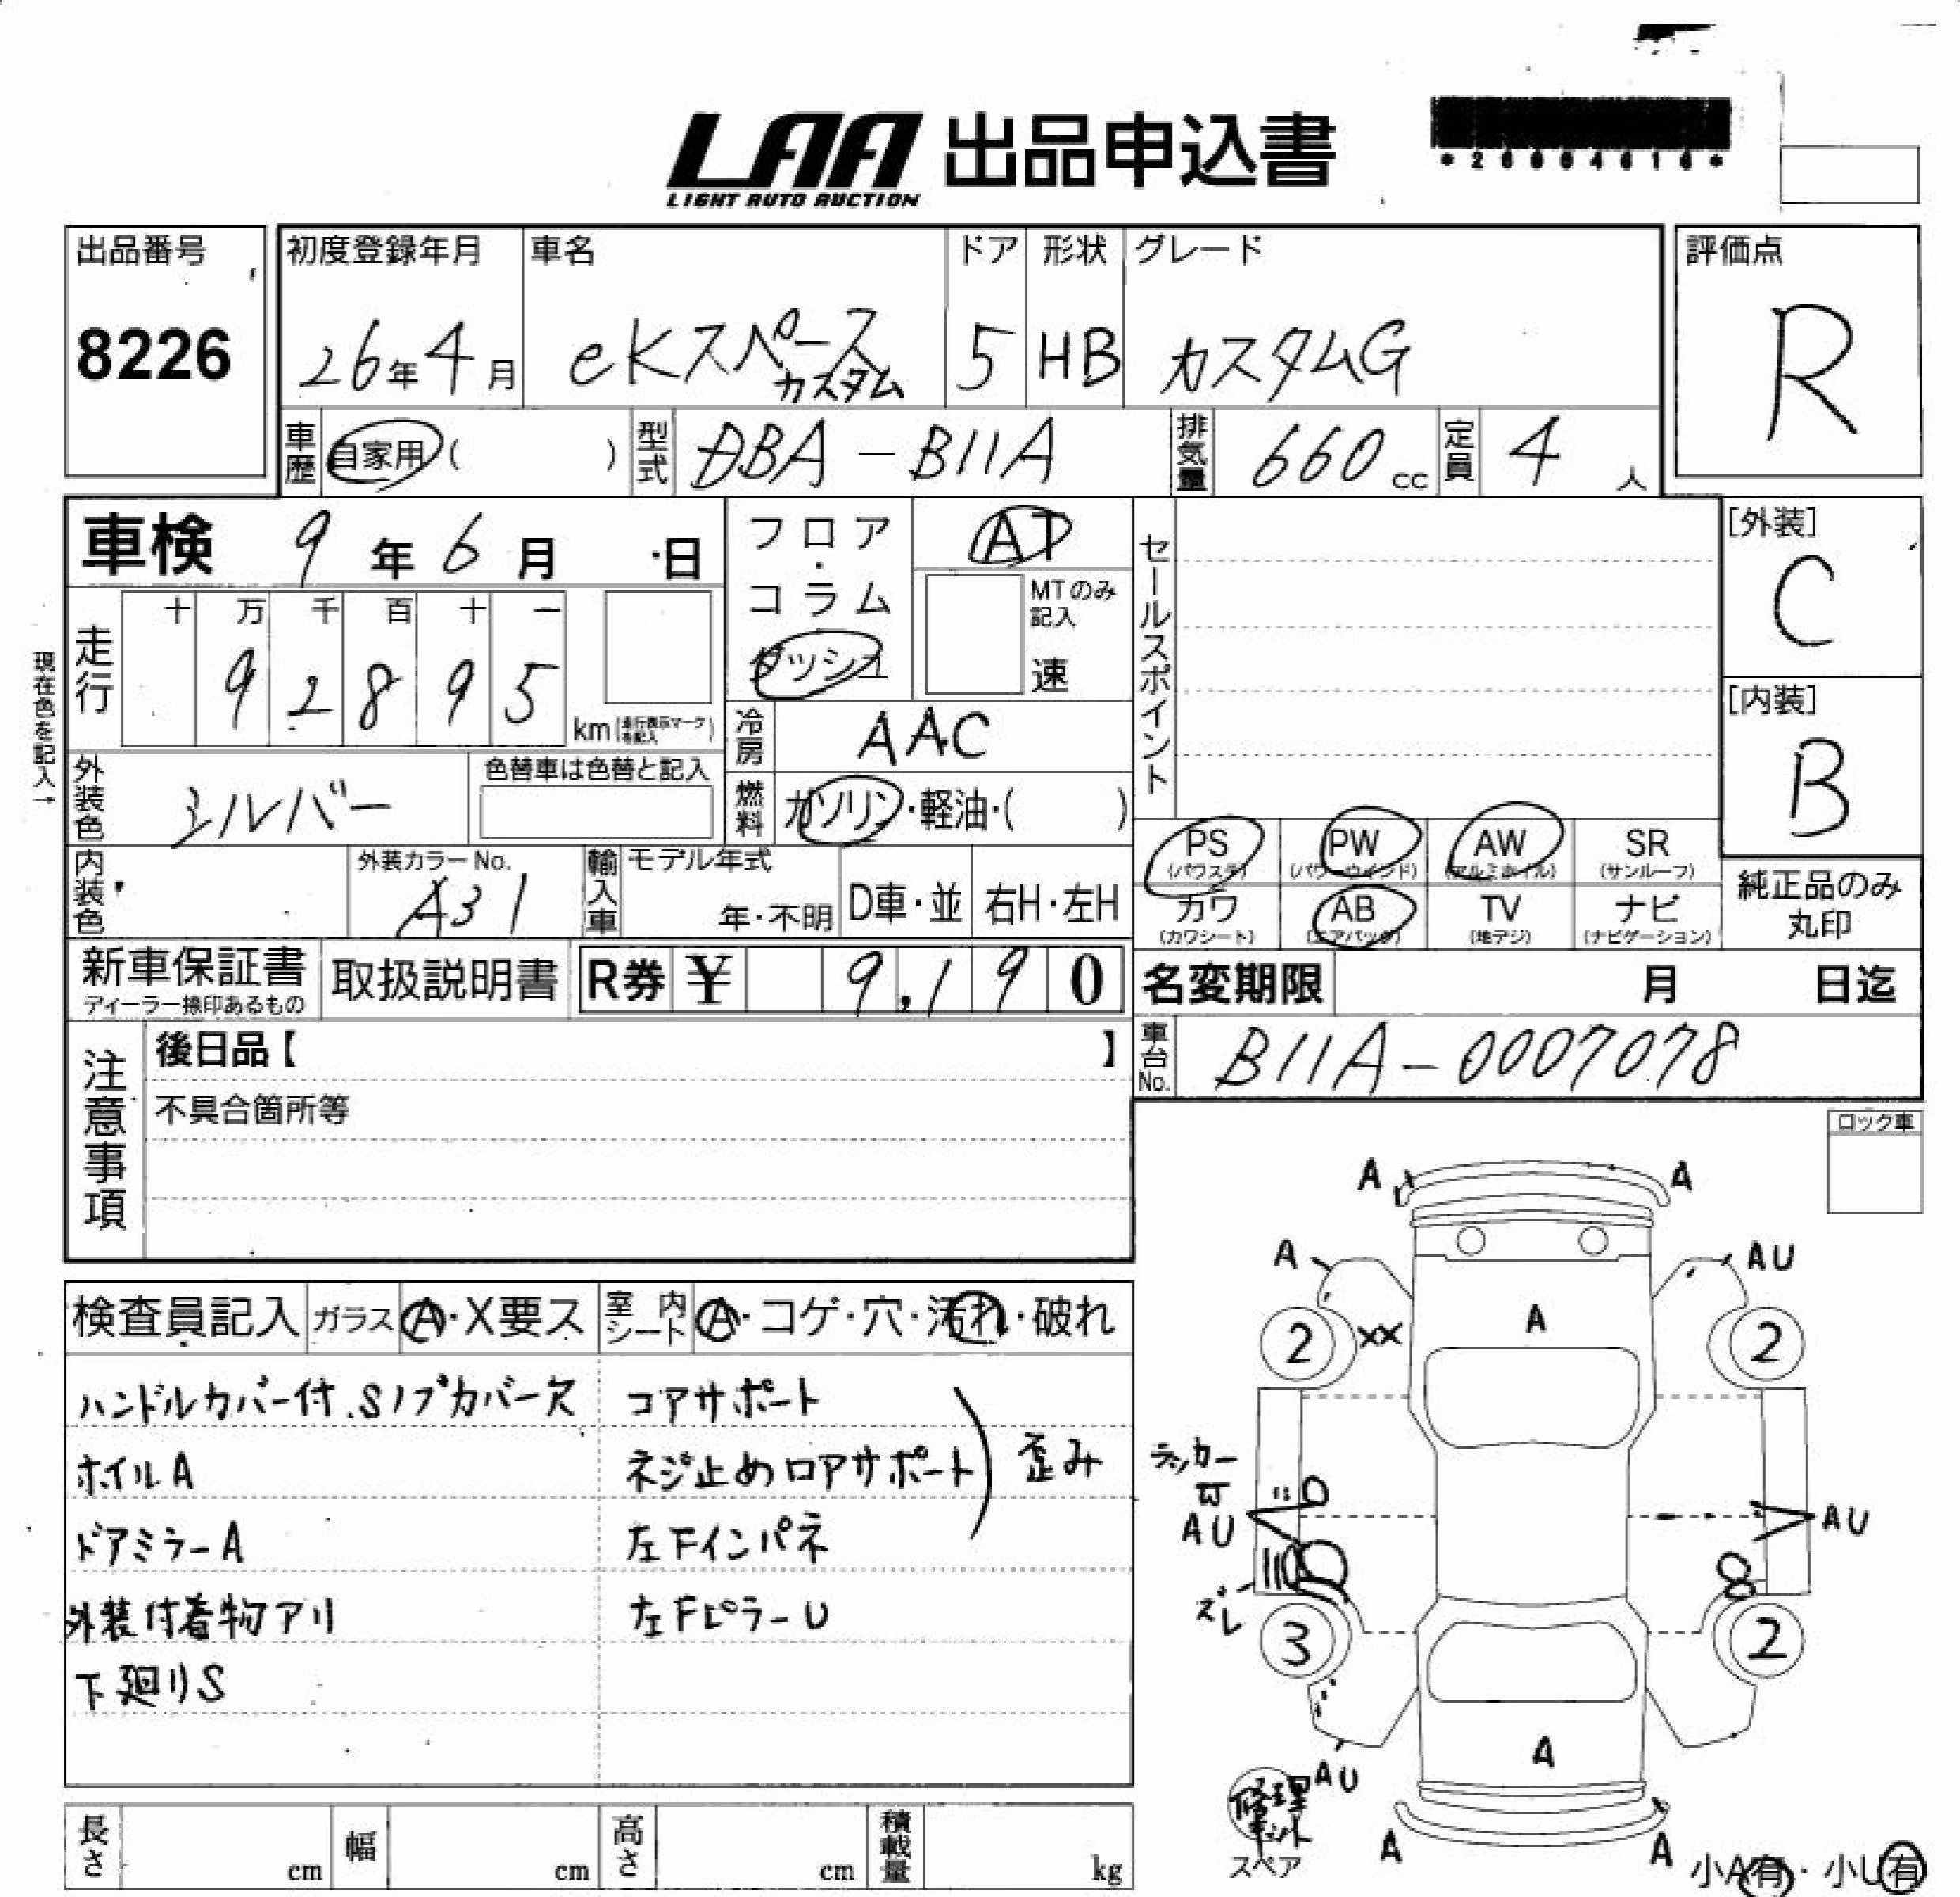 LAA 出品申込書
LIGHT AUTO AUCTION
出品番号
8226
初度登録年月
26年4月
車名
eKスペース
カスタム
ドア
5
形状
HB
グレード
カスタムG
評価点
R
車歴 自家用( )
型式 DBA-B11A
排気量 660cc
定員 4人
車検 9年6月 日
フロア・コラム
ダッシュ
AT
MTのみ記入
速
セールスポイント
[外装]
C
[内装]
B
現在色を記入→
走行
十 万 千 百 十 一
9 2 8 9 5
km(走行表示マークを記入)
冷房 AAC
外装色 シルバー
色替車は色替と記入
燃料 ガソリン・軽油・( )
PS (パワステ)
PW (パワーウインド)
AW (アルミホイル)
SR (サンルーフ)
カワ (カワシート)
AB (エアバッグ)
TV (地デジ)
ナビ (ナビゲーション)
純正品のみ
丸印
内装色
外装カラーNo.
A31
輸入車
モデル年式
年・不明
D車・並
右H・左H
新車保証書
ディーラー捺印あるもの
取扱説明書
R券 ¥ 9,190
名変期限 月 日迄
車台No. B11A-0007078
注意事項
後日品【 】
不具合箇所等
ロック車
検査員記入 ガラス A・X要ス 室内シート A・コゲ・穴・汚れ・破れ
ハンドルカバー付.Sノブカバー欠
ホイルA
ドアミラーA
外装付着物アリ
下廻りS
コアサポート
ネジ止めロアサポート
左Fインパネ
歪み
左FピラーU
A A
A AU
A
2 XX 2
AU
AU
ズレ
3 2
A
AU
修理キット
スペア
A A
小A有・小U有
長さ cm
幅 cm
高さ cm
積載量 kg